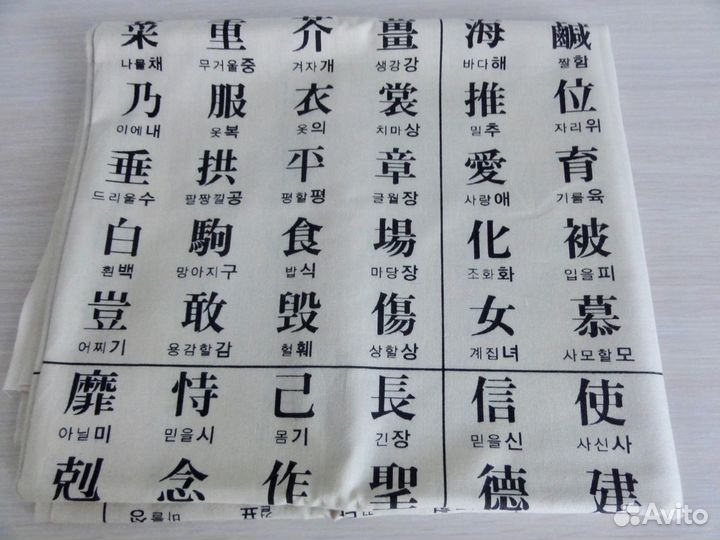 菜 重 芥 薑 海 鹹
나물채 무거울중 겨자개 생강강 바다해 짤함
乃 服 衣 裳 推 位
이에내 옷복 옷의 치마상 밀추 자리위
垂 拱 平 章 愛 育
드리울수 팔짱낄공 평할평 글월장 사랑애 기를육
白 駒 食 場 化 被
흰백 망아지구 밥식 마당장 조화화 입을피
豈 敢 毁 傷 女 慕
어찌기 용감할감 헐훼 상할상 계집녀 사모할모
靡 恃 己 長 信 使
아닐미 믿을시 몸기 긴장 믿을신 사신사
剋 念 作 聖 德 建
Avito